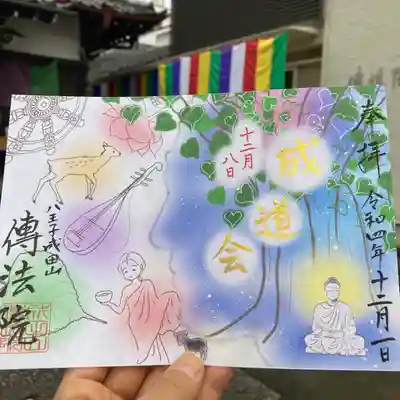 奉拝
令和四年十二月一日
十二月
八日
成
道
会
八王子成田山
傳法院